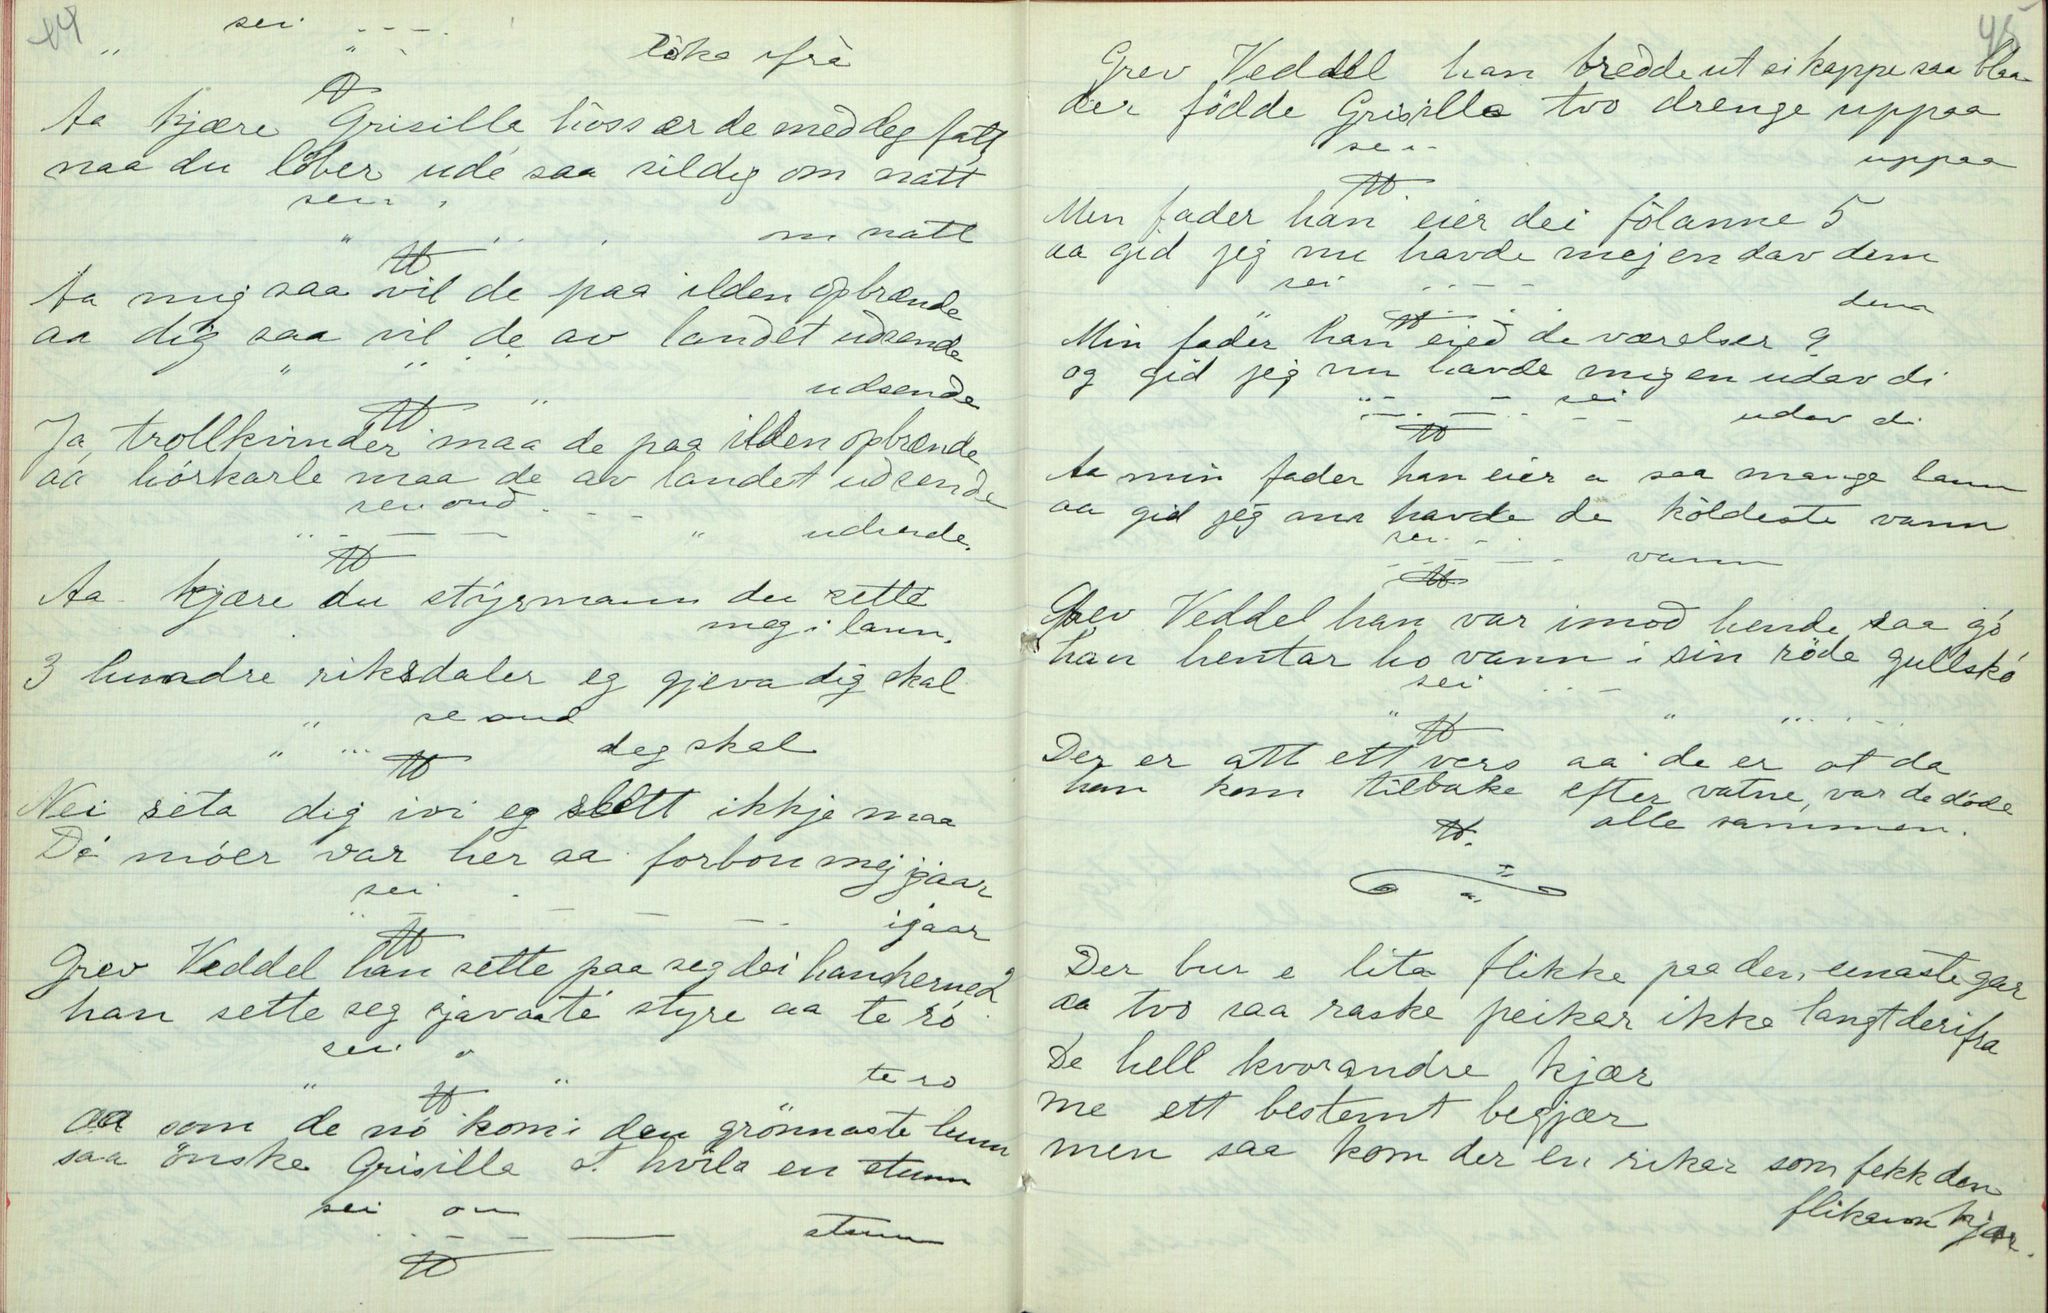 44
sei - - - -
" " - löka ifrå
Aa kjære Grisille hoss er de med deg fatt
naa du löber ude saa sildig om natt
sei " .
" om natt
Aa mig saa vil de paa ilden opbrænde
aa dig saa vil de av landet udsende
" " " udsende
Ja, trollkvinder maa de paa ilden opbrænde
aa hórkarle maa de av landet udsende
sei oud - - -
" - - - " udsende.
Aa kjære du stýrmann du sette
meg i lann.
3 hundre riksdaler eg gjeva dig skal
" se oud
" " deg skal
Nei seta dig ivi eg slett ikkje maa
Dé móer var her aa forbou mej igaar
sei -
" - - - - igaar
Grev Veddel han sette paa seg dei hanskerne 2
han sette seg sjav até styre aa te ró
sei "
" " te ro
aa som de nó kom i den grönnaste lunn
saa önske Grisille at hvila en stunn
sei ou
- - - stunn
45
Grev Veddel han bredde ut ei kappe saa blaa
der födde Grisille tvo drenge uppaa
sei
uppaa
Min fader han eier dei fólanne 5
aa gid jeg nu havde mej en dav dem
sei - - -
dem
Min fader han eied de værelser 9
og gid jeg nu havde mig en udav di
" - - sei
- - - - udav di
Aa min fader han eier a saa mange lann
aa gid jeg nu havde de köldeste vann
sei - -
- - - - vann
Grev Veddel han var imod hende saa gó
han hentar ho vann i sin röde gullskó
sei - -
" " "
Der er att ett vers aa de er at da
han kom tilbake efter vatne, var de döde
alle sammen.
Der bur e lita flikke paa den enaste gar
aa tvo saa raske peikar ikke langt derifra
De hell kvorandre kjær
me ett bestemt begjær
men saa kom der en rikar som fekk den
flikann kjær.